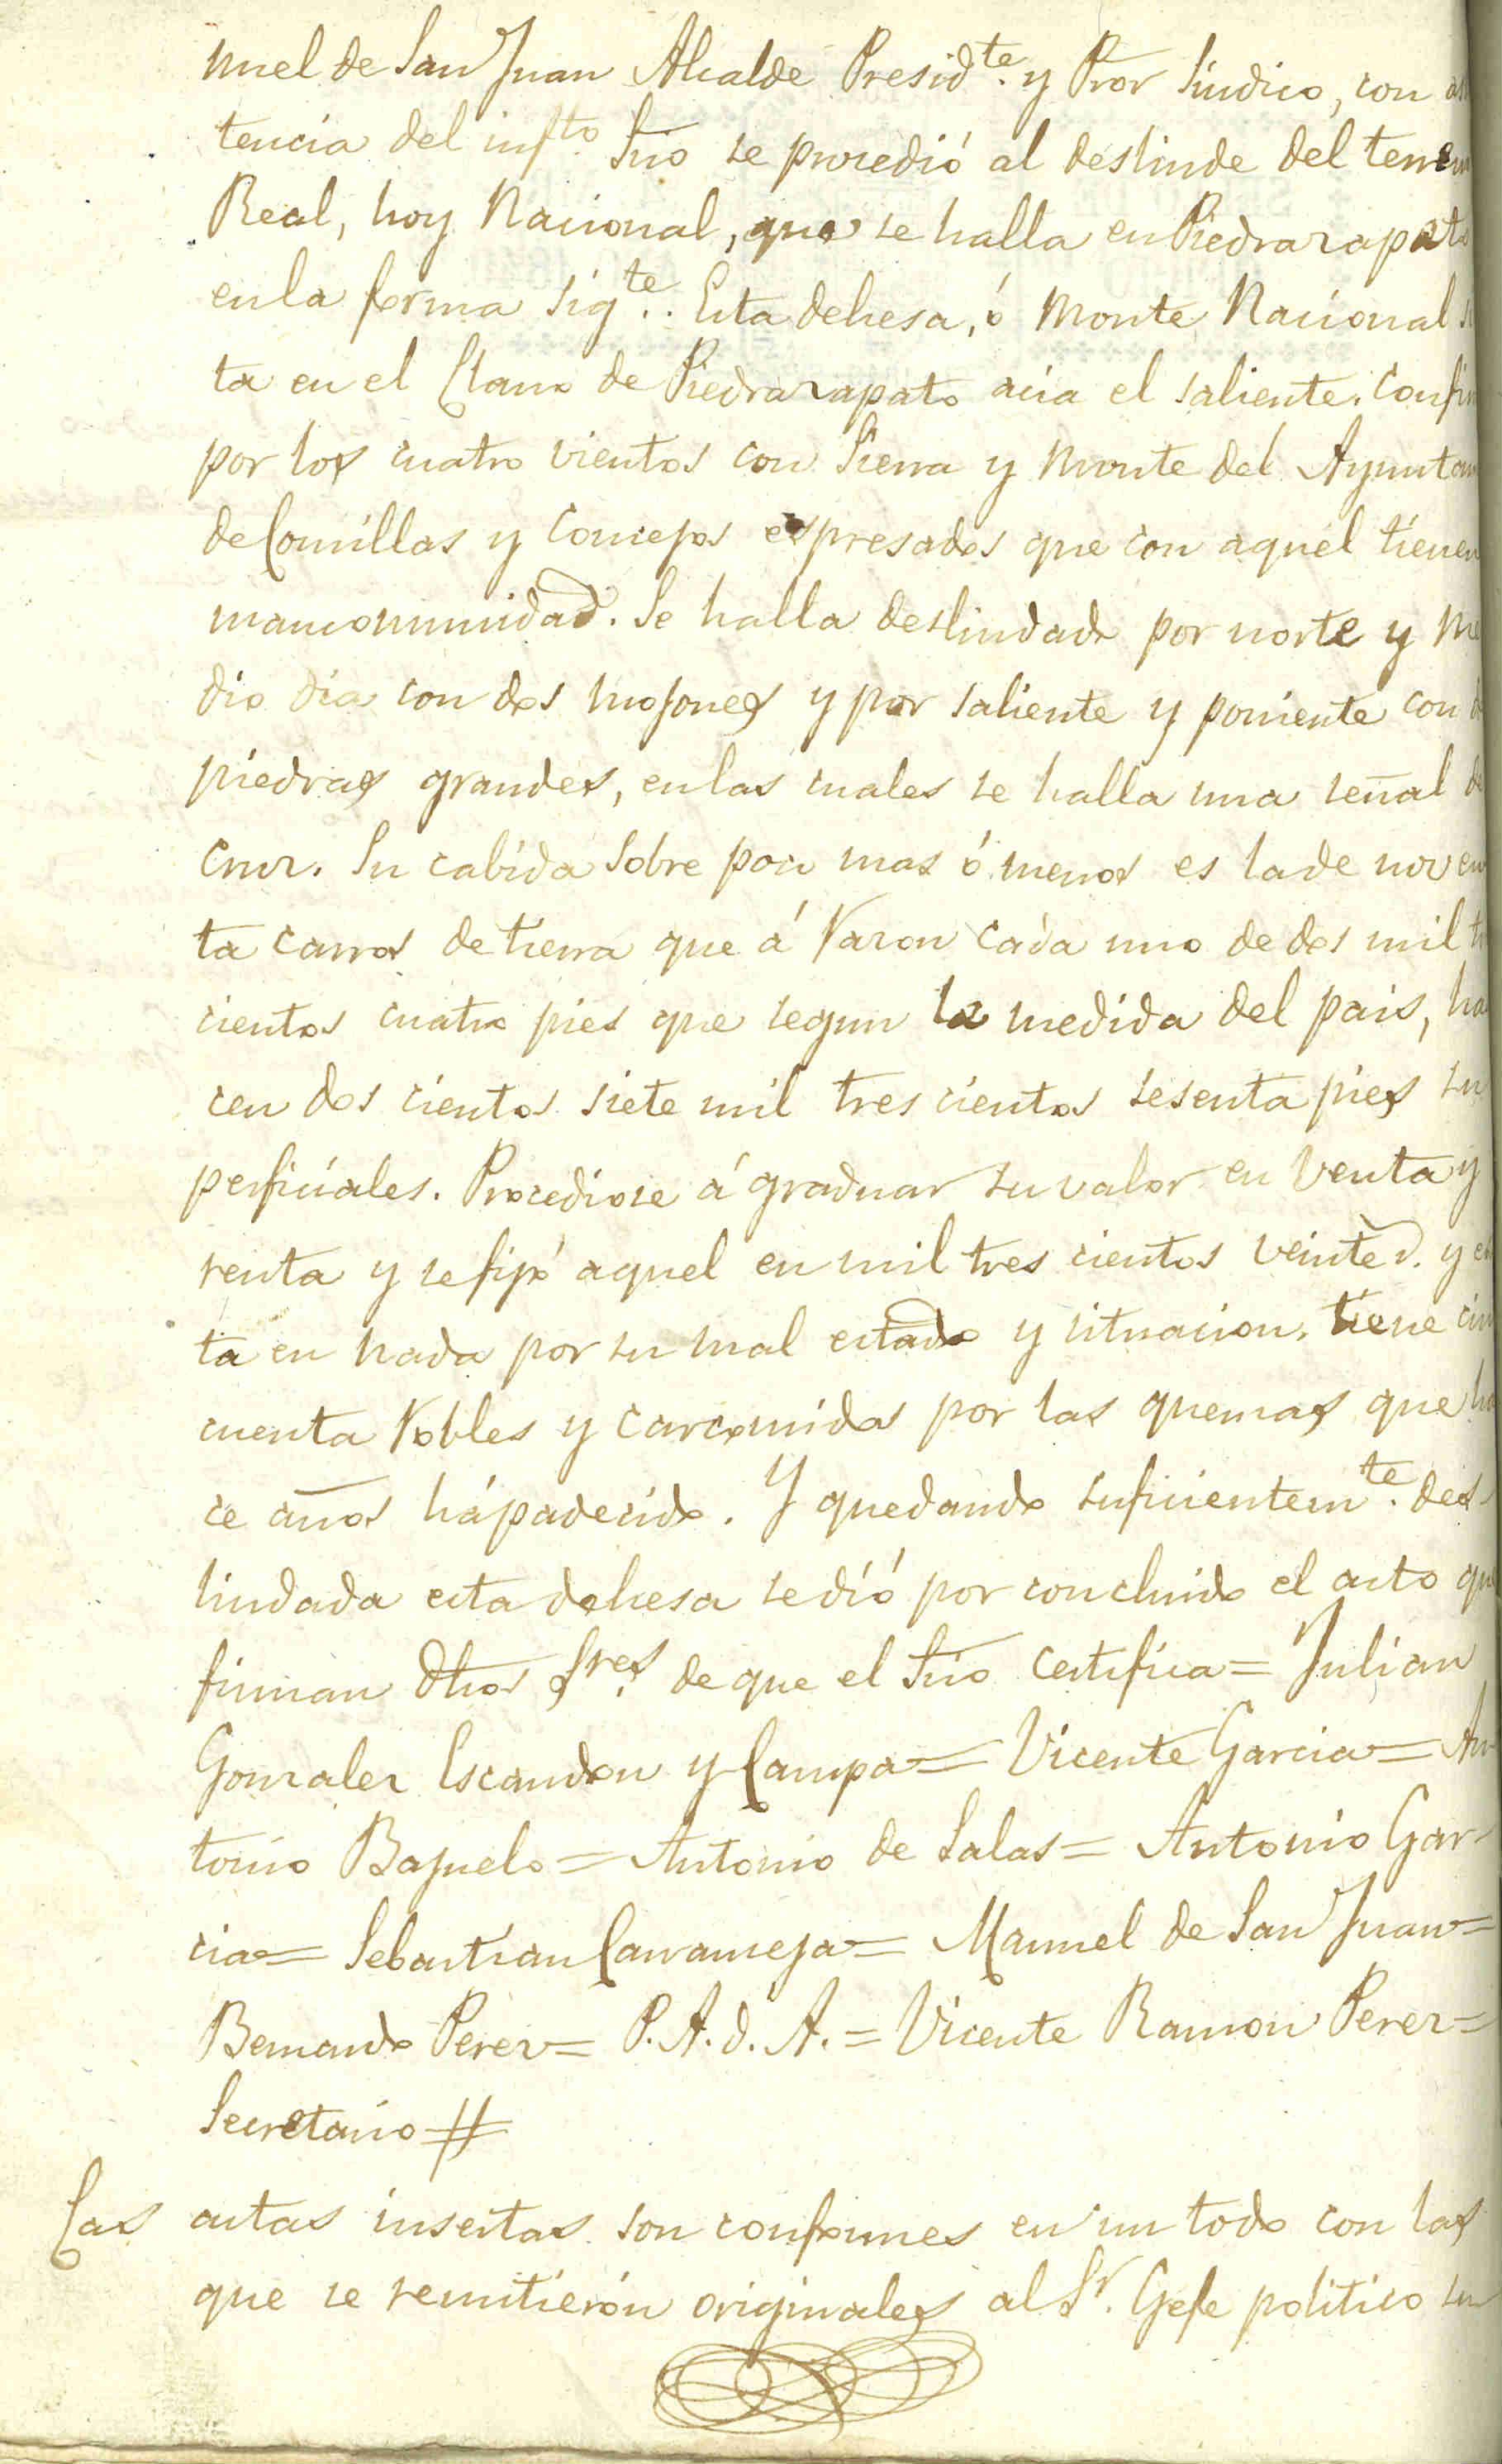 nuel de San Juan Alcalde Presid.te y Pror Sindico, con asis
tencia del inf.to Srio se procedió al deslinde del terreno
Real, hoy Nacional, que se halla en Piedrazapato
en la forma sig.te. Esta dehesa, ó Monte Nacional si
ta en el Llano de Piedrazapato acia el saliente. Confina
por los cuatro vientos con Sierra y Monte del Ayuntam
de Comillas y Concejos espresados que con aquel tienen
mancomunidad. Se halla deslindado por norte y me
dio dia con dos mojones y por saliente y poniente con dos
piedras grandes, en las cuales se halla una señal de
Cruz. Su cabida sobre poco mas ó menos es la de noven
ta carros de tierra que á razon cada uno de dos mil tres
cientos cuatro pies que segun la medida del pais, ha
cen dos cientos siete mil tres cientos sesenta pies su
perficiales. Procediose á graduar su valor en Venta y
renta y se fijó aquel en mil tres cientos veinte r. y es
ta en nada por su mal estado y situacion. tiene cin
cuenta Robles y carcomidos por las quemas que ha
ce años há padecido. Y quedando suficientem.te des-
lindada esta dehesa se dió por concluido el acto que
firman dhos Sres. de que el Srio certifica = Julian
Gonzalez Escandon y Campa = Vicente Garcia = An-
tonio Bajuelo = Antonio de Salas = Antonio Gar-
cia = Sebastian Carranceja = Manuel de San Juan =
Bernardo Perez = P. A. d. A. = Vicente Ramon Perez =
Secretario #
Las actas insertas son conformes en un todo con las
que se remitierón originales al Sr. Gefe politico su